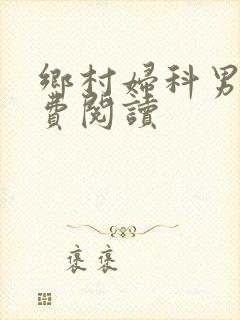 鄉村婦科男
費閱讀
褒褒